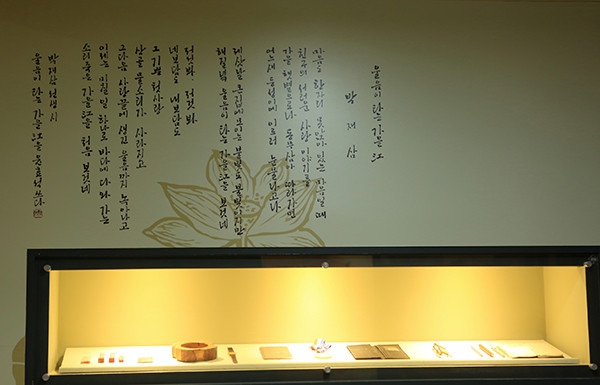 울음이 타는 가을 江
박재삼
마음도 한자리 못앉아 있는 마음일 때
친구의 서러운 사랑 이야기를
가을 햇볕으로나 동무삼아 따라가면
어느새 등성이에 이르러 눈물나고나
제삿날 큰집에 모이는 불빛도 불빛이지만
해질녘 울음이 타는 가을江을 보것네
저것봐, 저것봐
네보담도 내보담도
그 기쁜 첫사랑
산골 물소리가 사라지고
그 다음 사랑끝에 생긴 울음까지 녹아나고
이제는 미칠 일 하나로 바다에 다 와 가는
소리죽은 가을江을 처음 보것네
박재삼 선생 시
울음이 타는 가을江을 쓰다